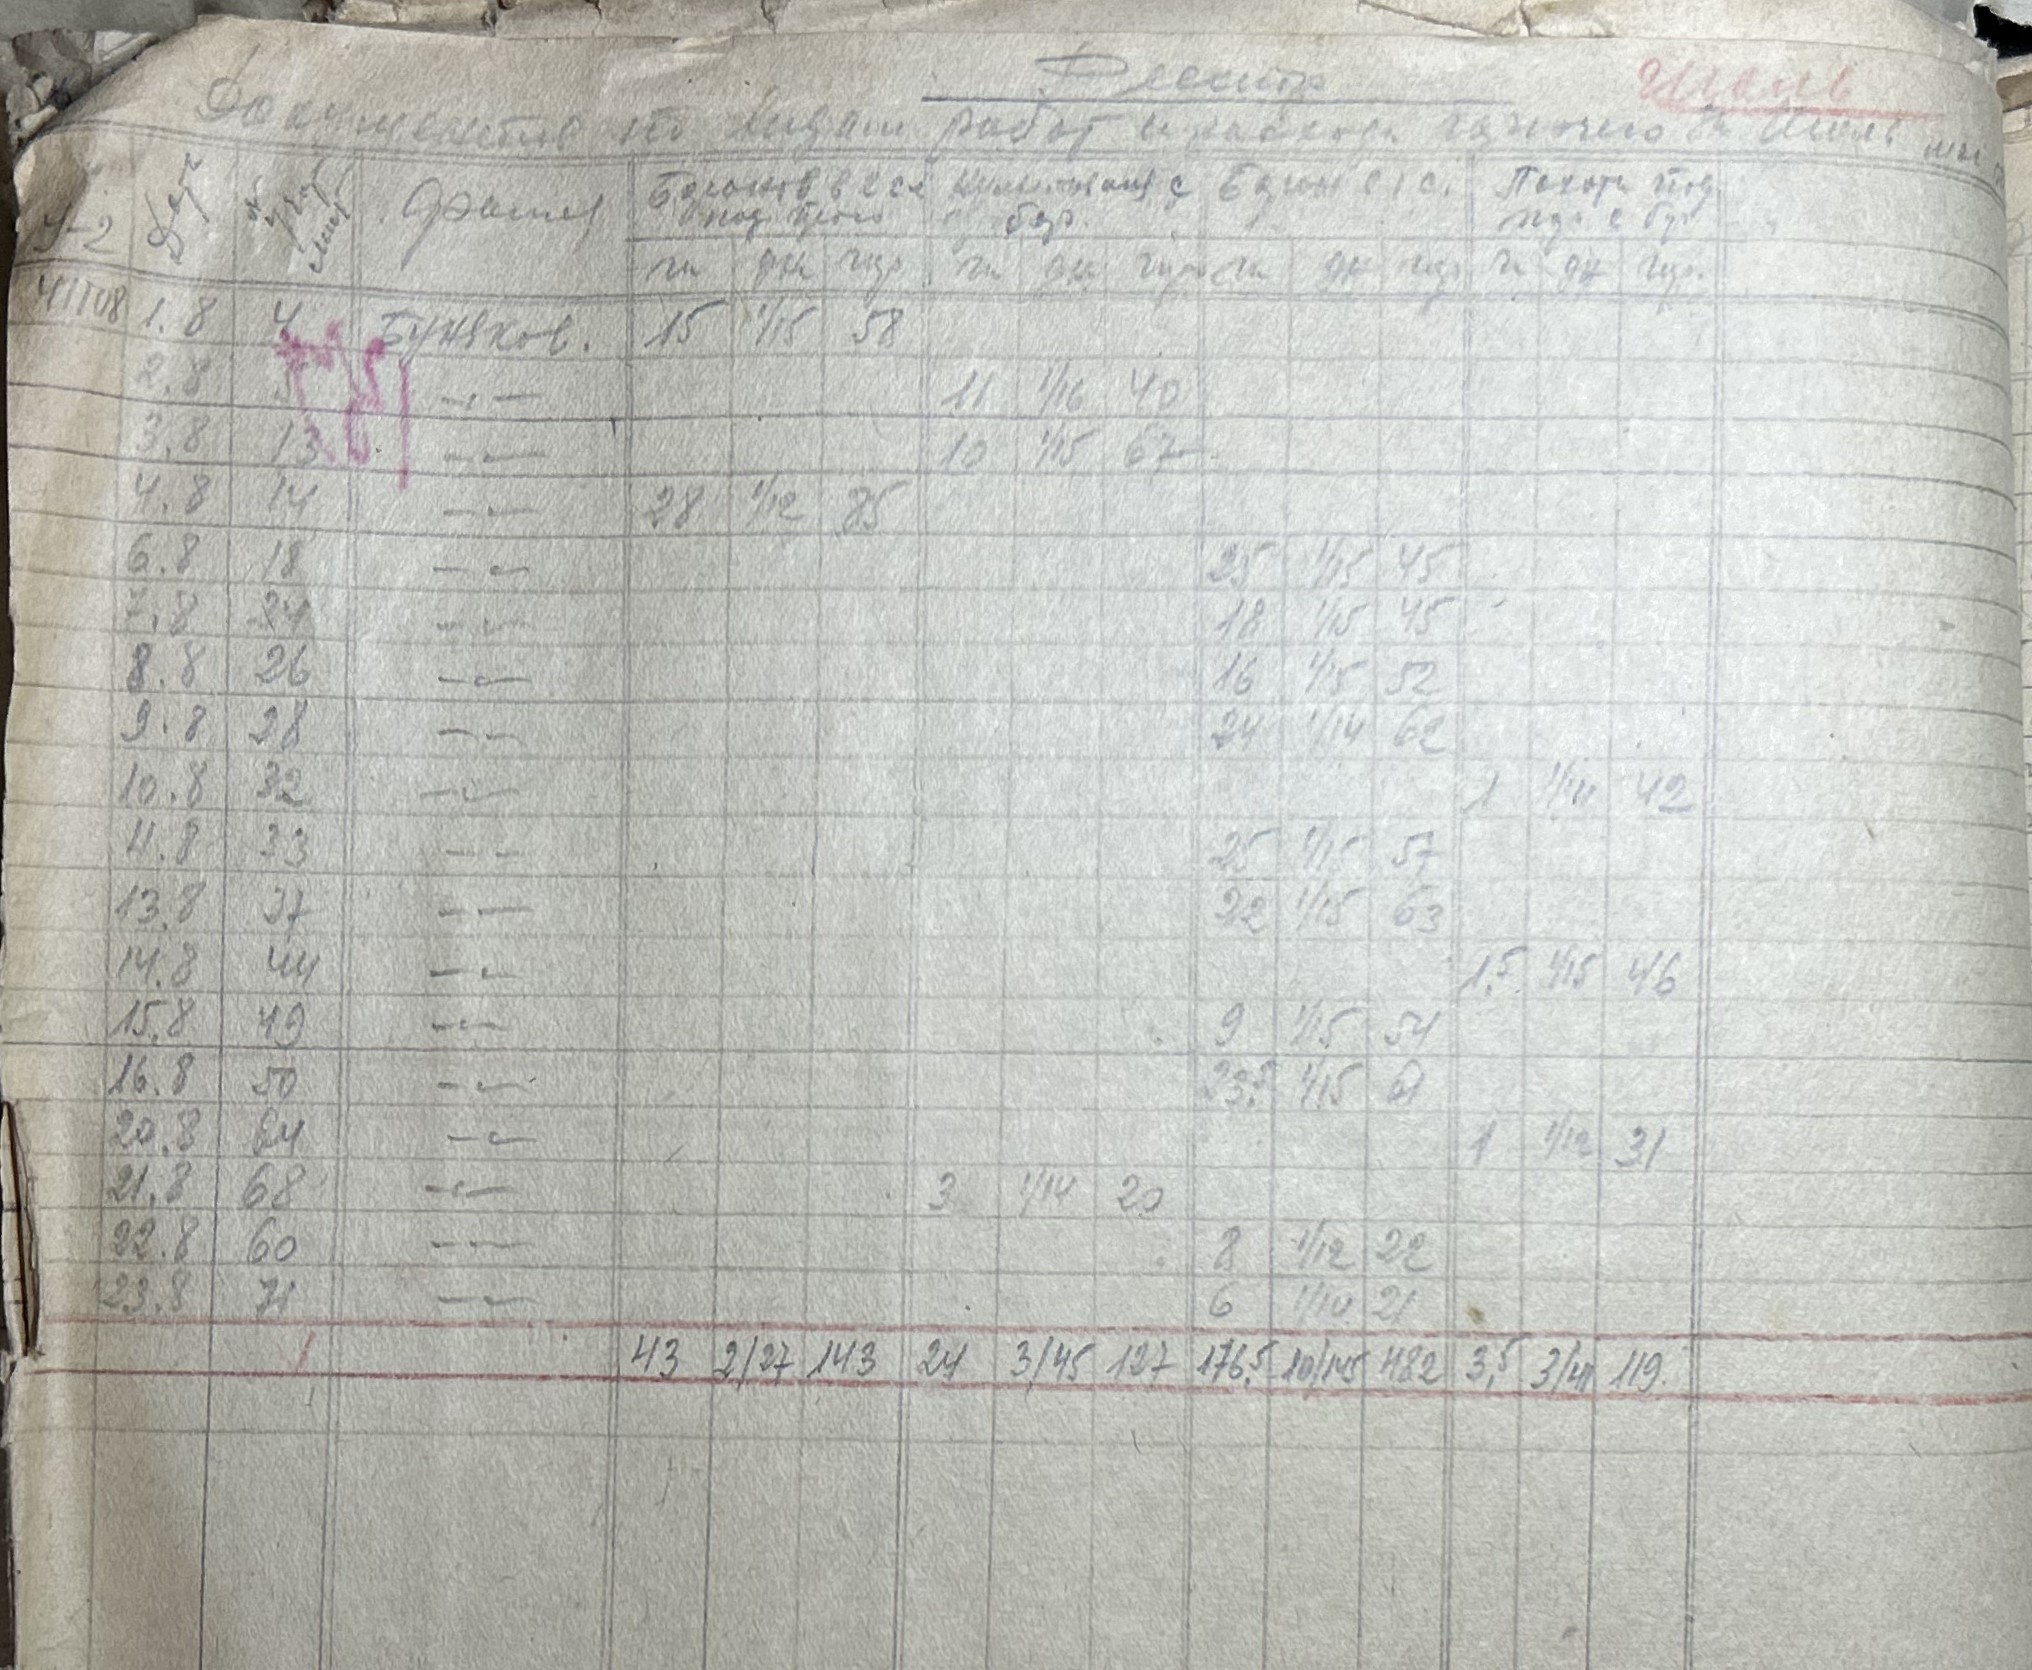 Реестр
Июль
Документов по видам работ и расхода горючего за Июль
У-2 Дата № учет лист Фамил Боронов в 2 сл под Культивация с бор. Боронов 1 с. Пахота под
га дн гор га дн гор га дн гор га дн гор.
41108 1.8 4 Бужяков. 15 1/15 58
2.8 -"- 11 1/16 40
3.8 13 -"- 10 1/15 67
4.8 14 -"- 28 1/12 85
6.8 18 -"- 25 1/15 45
7.8 24 -"- 18 1/15 45
8.8 26 -"- 16 1/15 52
9.8 28 -"- 24 1/14 62
10.8 32 -"- 1 42
11.8 33 -"- 25 1/15 57
13.8 37 -"- 22 1/15 63
14.8 44 -"- 1,5 1/15 46
15.8 49 -"- 9 1/15 54
16.8 50 -"- 23,5 1/15 61
20.8 64 -"- 1 1/12 31
21.8 68 -"- 3 1/14 20
22.8 60 -"- 8 1/12 22
23.8 71 -"- 6 1/14 21
43 2/27 143 24 3/45 127 176,5 10/145 482 3,5 3/41 119.